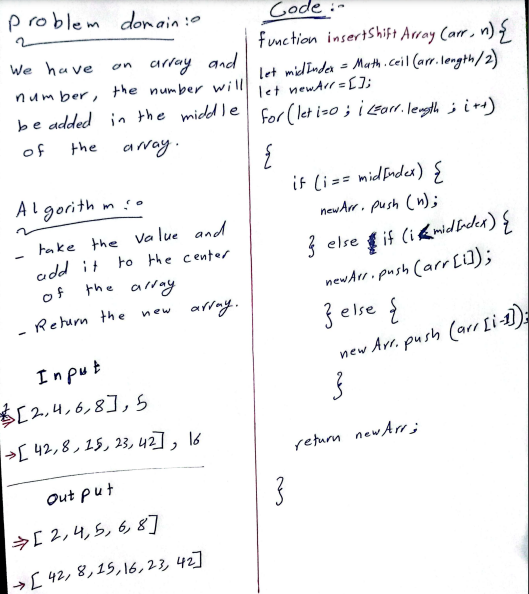 Problem domain:
We have an array and
number, the number will
be added in the middle
of the array.
Algorithm:
- take the value and
add it to the center
of the array
- Return the new array.
Input
⇒[2,4,6,8], 5
→[42,8,15,23,42], 16
Output
⇒[2,4,5,6,8]
→[42,8,15,16,23,42]
Code:-
function insertShiftArray(arr, n){
let midIndex = Math.ceil(arr.length/2)
let newArr=[];
for(let i=0; i<=arr.length; i++)
{
if (i== midIndex) {
newArr.push(n);
} else if (i<midIndex) {
newArr.push(arr[i]);
} else {
newArr.push(arr[i-1]);
}
return newArr;
}